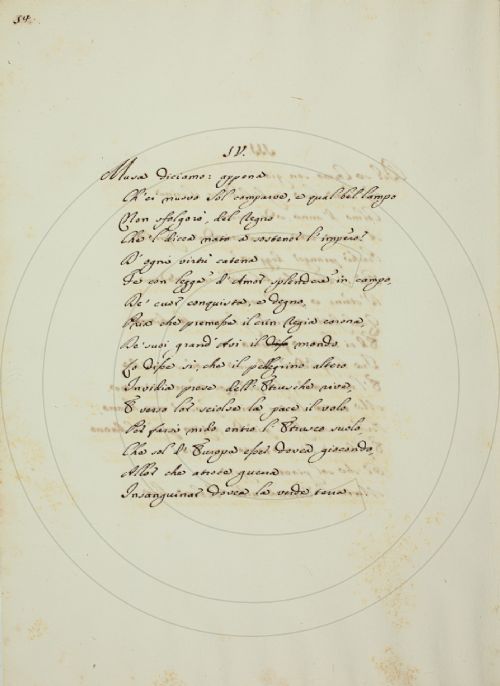 54.
IV.
Musa diciamo: appena
Ch'ei nuovo Sol comparve, e qual bel lampo
Non sfolgorò, del Regno
Che 'l dicea nato a sostener l'impero?
D'ogni virtù catena
Fe con legge d'Amor splendere in campo,
De' cuor conquista, e degno,
Pria che premesse il crin Regia corona,
De' suoi grand'Avi il mondo
Lo disse sì, che il pellegrino altero
Invidia prese dell'Etrusche rive
E verso lor sciolse la pace il volo
Per farsi nido entro l'Etrusco suolo
Che sol d'Europa esser dovea giocondo,
Allor che atroce guerra
Insanguinar dovea la verde terra